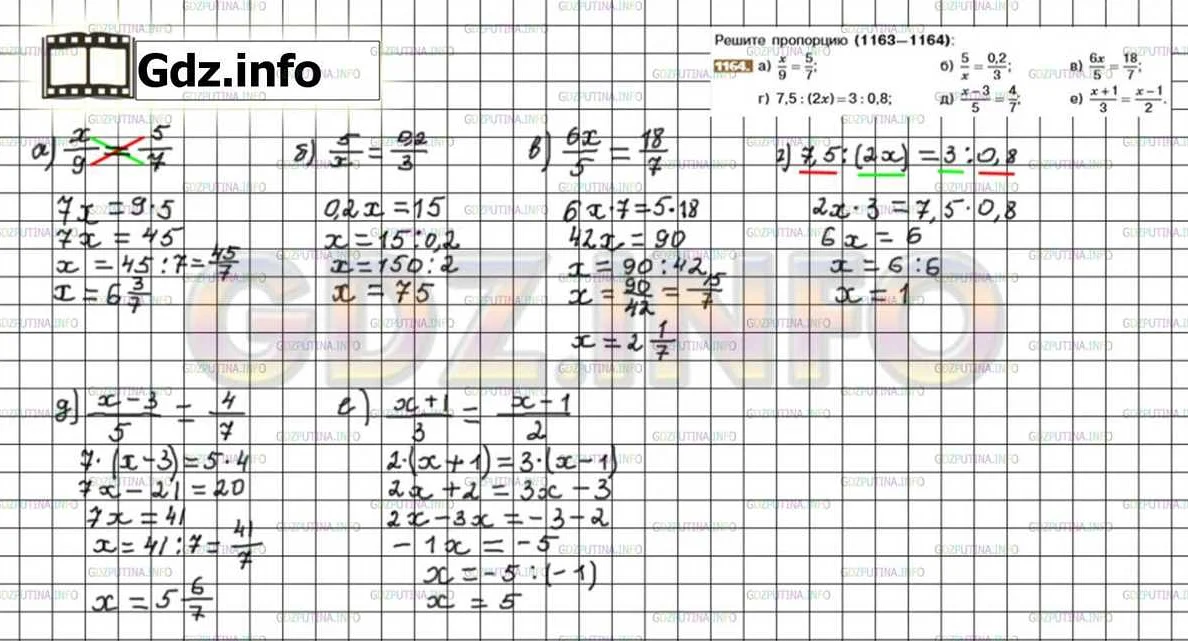 Gdz.info
Решите пропорцию (1163–1164):
1164. а) x/9 = 5/7; б) 5/x = 0,2/3; в) 6x/5 = 18/7;
г) 7,5 : (2x) = 3 : 0,8; д) x–3/5 = 4/7; е) x+1/3 = x–1/2.
а) x/9 = 5/7
7x = 9·5
7x = 45
x = 45:7 = 45/7
x = 6 3/7
б) 5/x = 0,2/3
0,2x = 15
x = 15:0,2
x = 150:2
x = 75
в) 6x/5 = 18/7
6x·7 = 5·18
42x = 90
x = 90:42
x = 90/42 = 15/7
x = 2 1/7
г) 7,5:(2x) = 3:0,8
2x·3 = 7,5·0,8
6x = 6
x = 6:6
x = 1
д) x–3/5 = 4/7
7·(x–3) = 5·4
7x – 21 = 20
7x = 41
x = 41:7 = 41/7
x = 5 6/7
е) x+1/3 = x–1/2
2·(x+1) = 3·(x–1)
2x + 2 = 3x – 3
2x – 3x = –3 – 2
– 1x = –5
x = –5:(–1)
x = 5
GDZ.INFO
GDZPUTINA.INFO